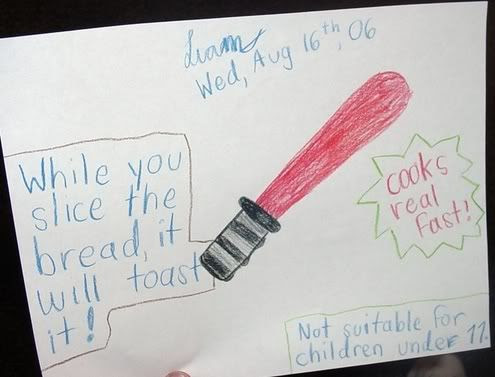 Liam
Wed, Aug 16th, 06
While you
slice the
bread, it
will toast
it!
cooks
real
Fast!
Not suitable for
children under 11.